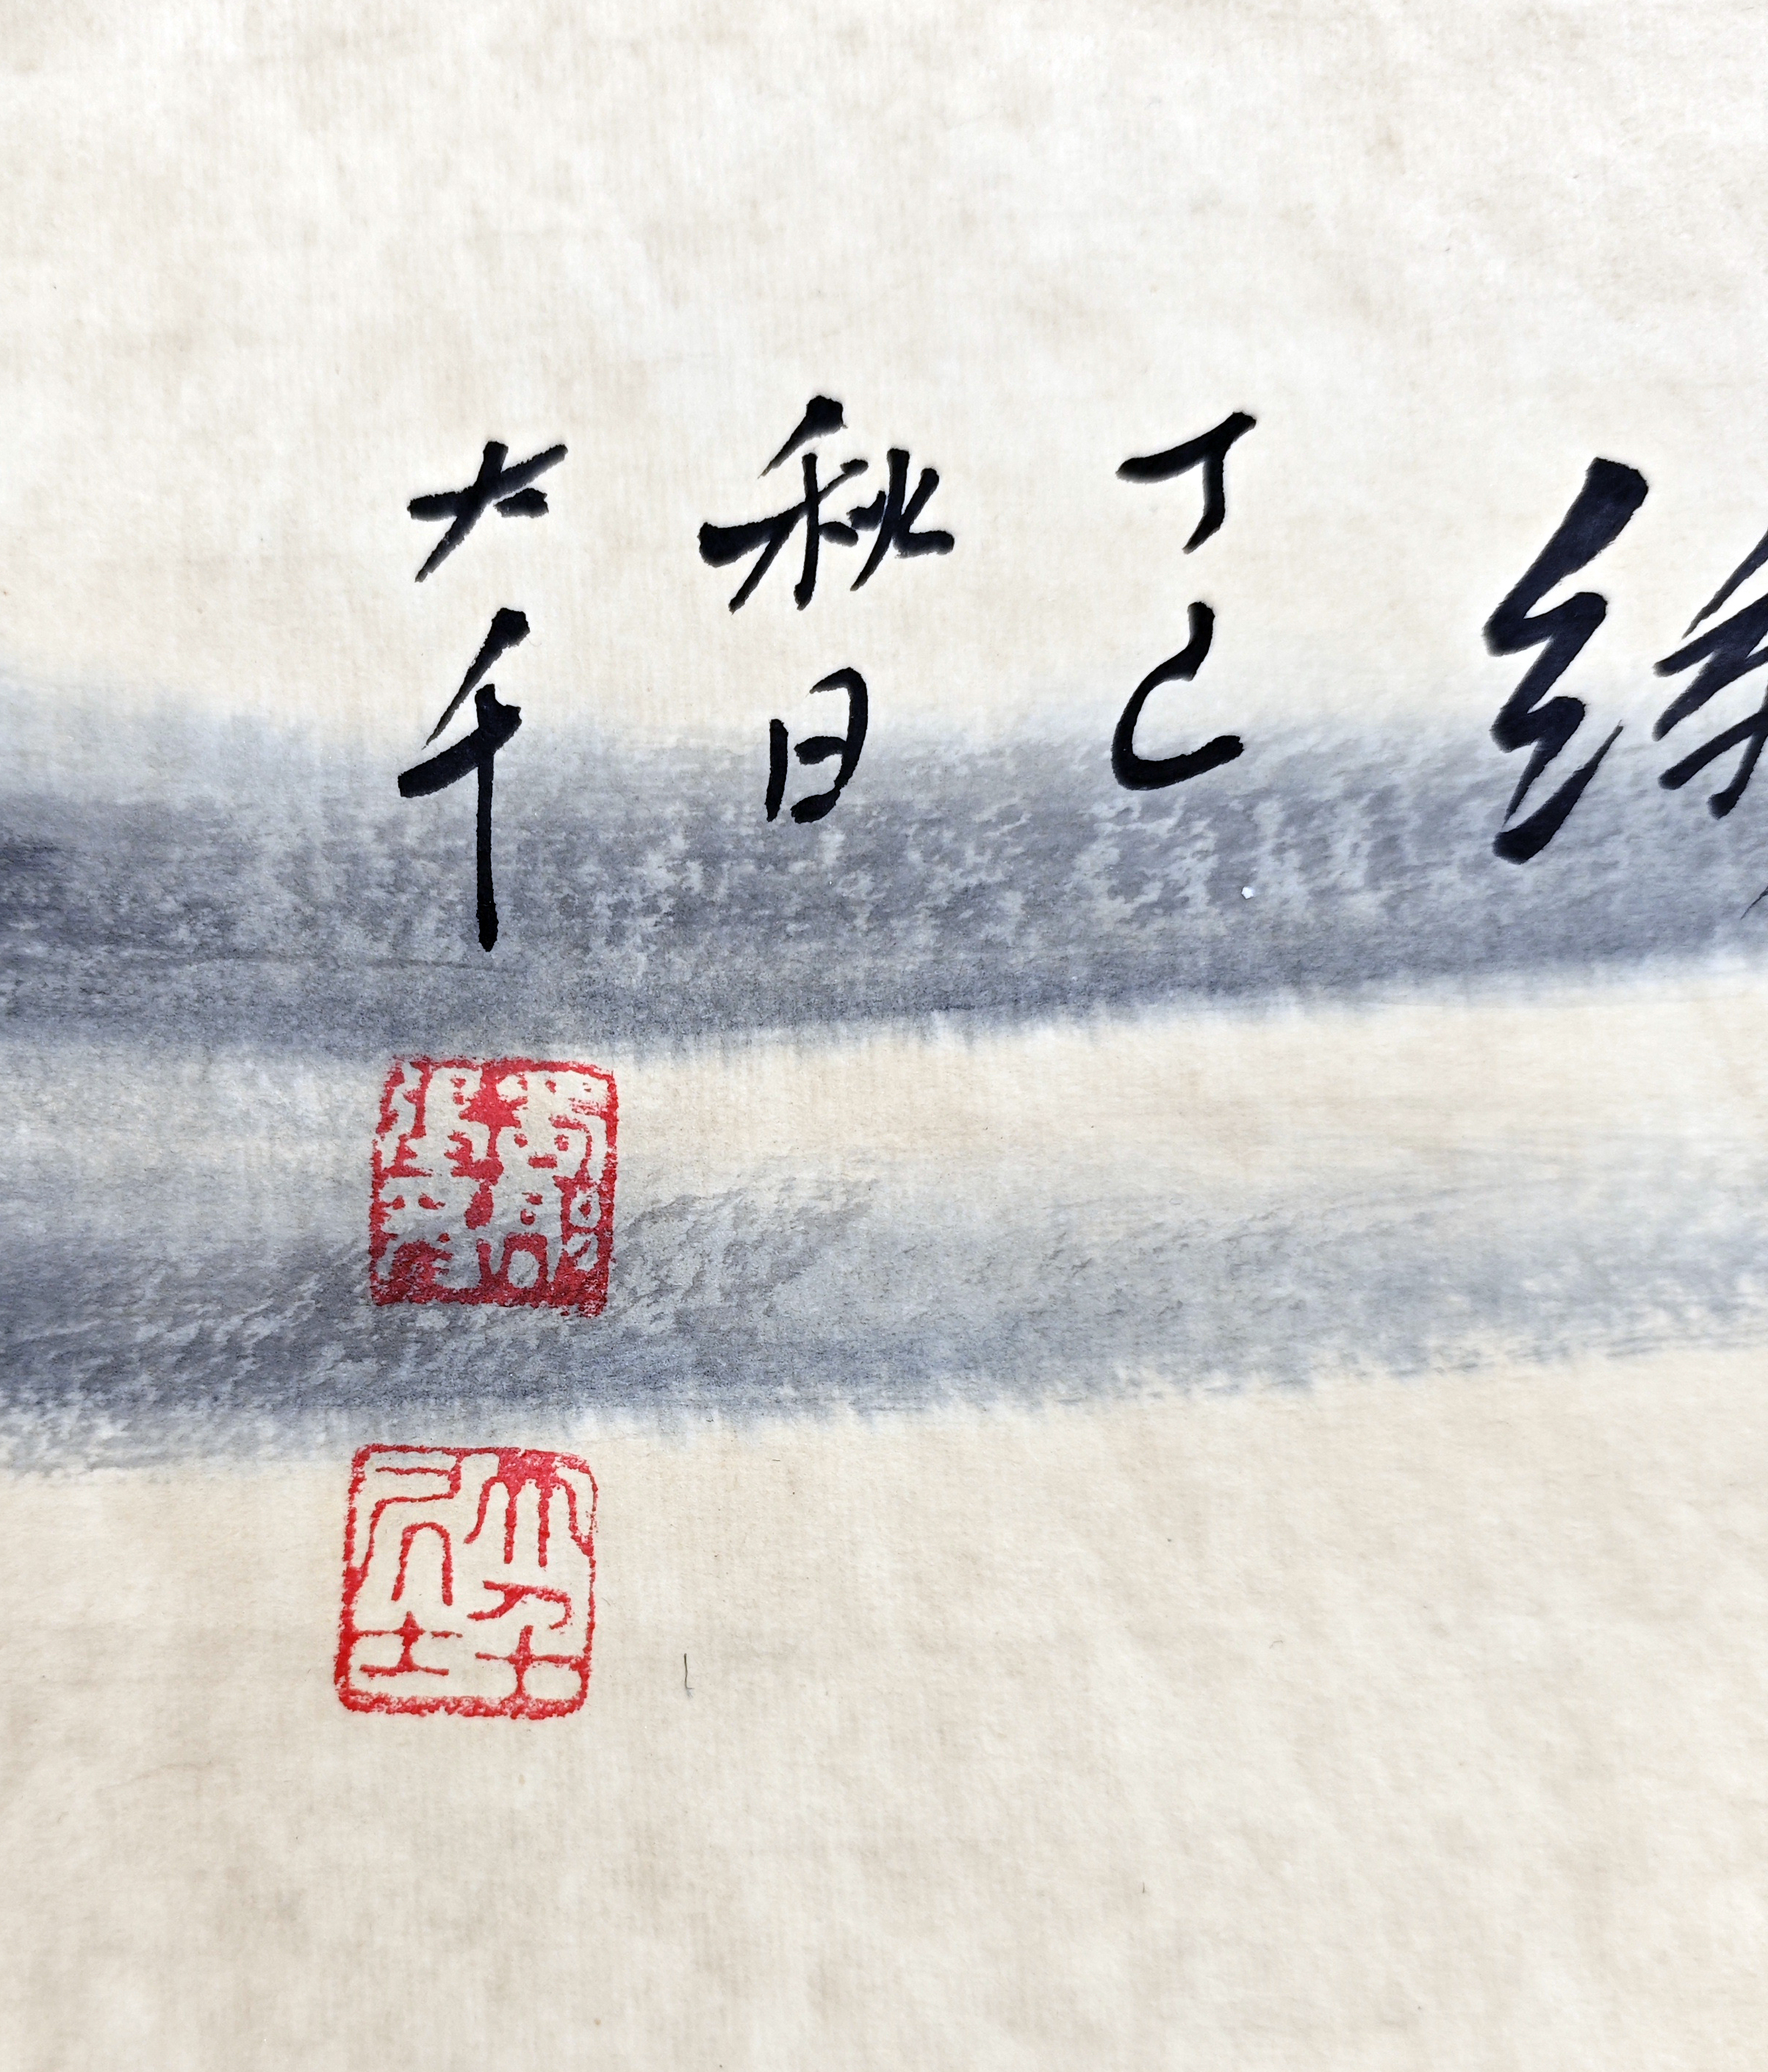 丁巳
秋日
大千
蜀郡張爰
大千居士